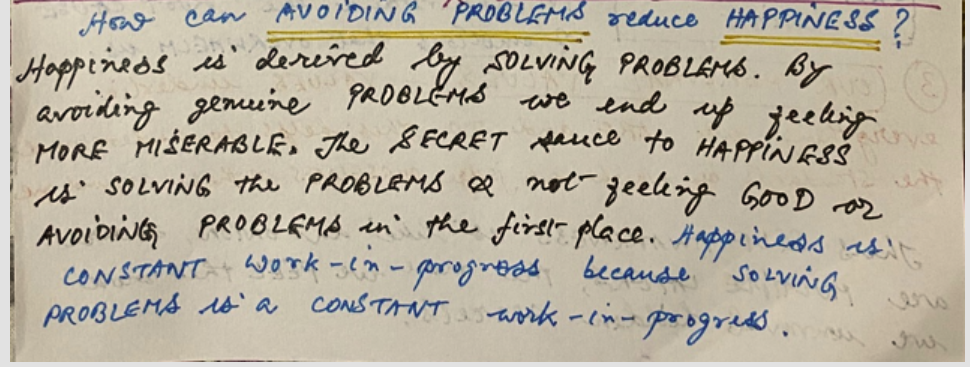 How can AVOIDING PROBLEMS reduce HAPPINESS?
Happiness is derived by SOLVING PROBLEMS. By
avoiding genuine PROBLEMS we end up feeling
MORE MISERABLE. The SECRET sauce to HAPPINESS
is SOLVING the PROBLEMS & not feeling GOOD or
AVOIDING PROBLEMS in the first place. Happiness is
CONSTANT work-in-progress because SOLVING
PROBLEMS is a CONSTANT work-in-progress.